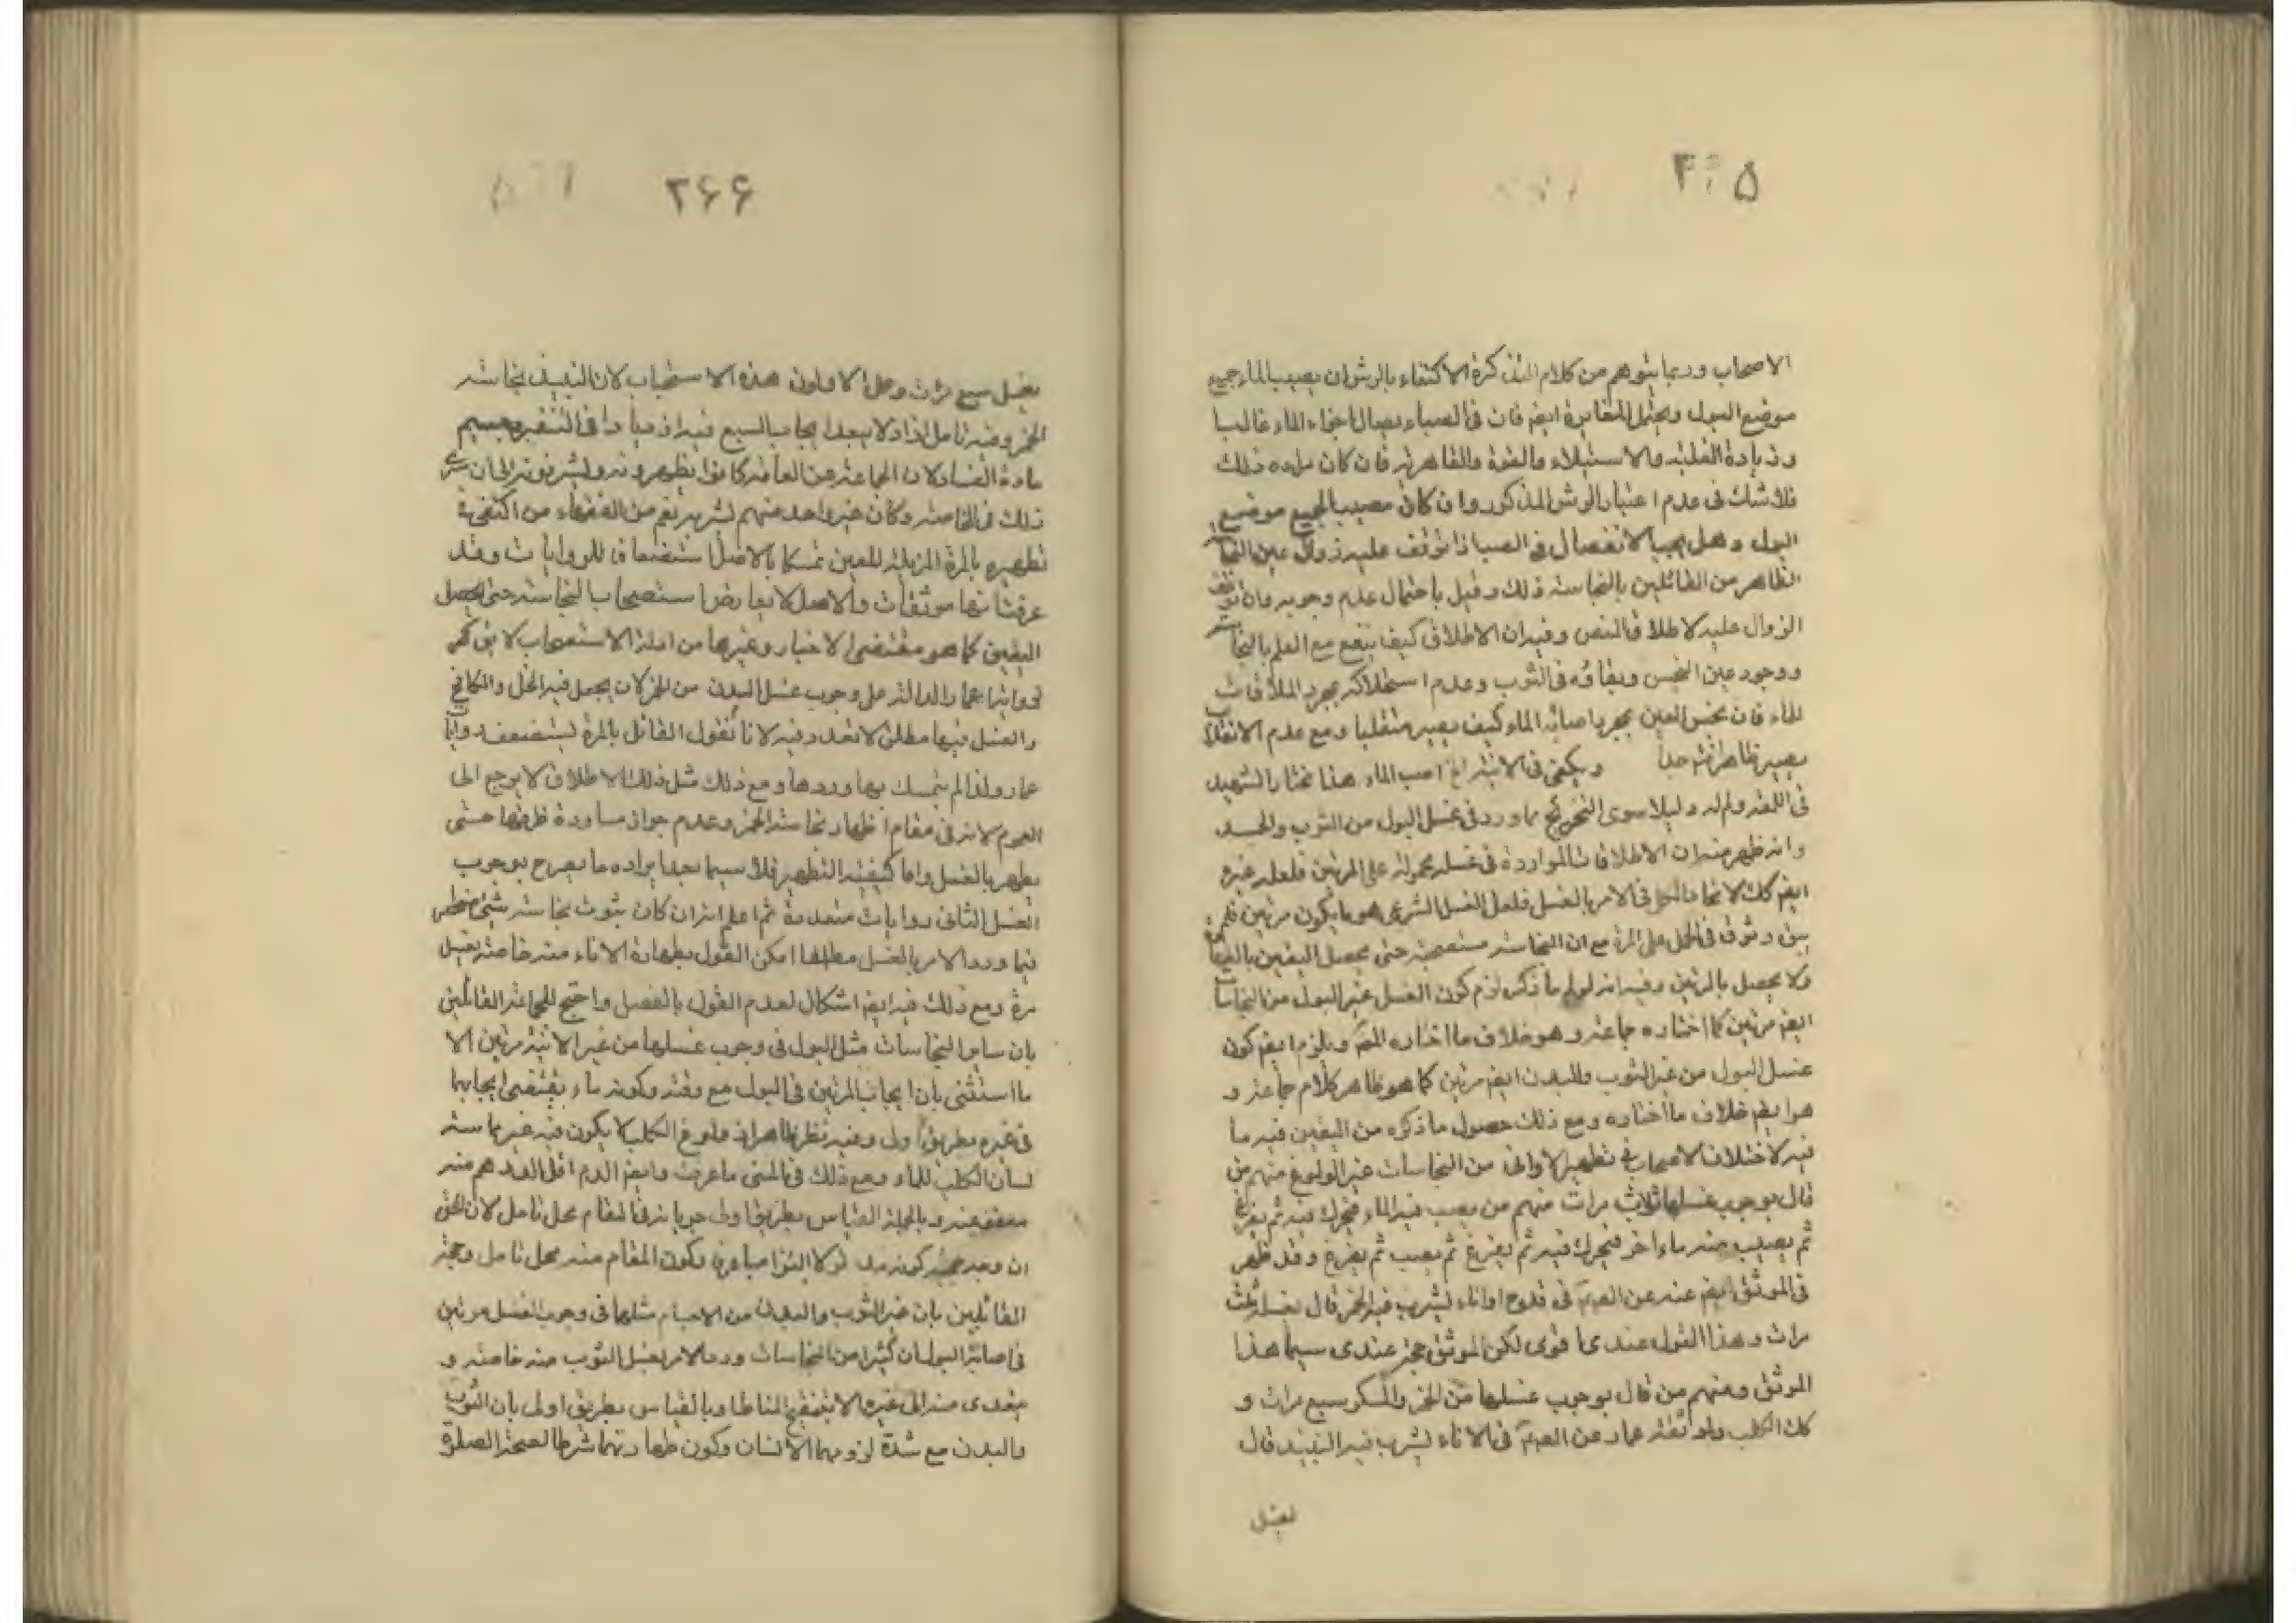 ۲۶۵
الاصحاب وربما يتوهم من كلام التذكرة الاكتفاء بالرش ان يصيب الماء جميع
موضع البول ويحتمل المغايرة ايضم فان في الصب ايصال اجزاء الماء غالبا
وزيادة الغلبة والاستيلاء والقوة والقاهرية فان كان مراده ذلك
فلا شك في عدم اعتبار الرش المذكور وان كان مصيب الجميع موضع
البول وهل يجب الانفصال في الصب اذا توقف عليه زوال عين النجاسة
الظاهر من القائلين بالنجاسة ذلك وقيل باحتمال عدم وجوبه وان توقف
الزوال عليه لاطلاق النص وفيه ان الاطلاق كيف ينفع مع العلم بالنجاسة
ووجود عين النجس وبقائه في الثوب وعدم استهلاكه بمجرد الملاقات
للماء فان نجس العين بمجرد اصابة الماء كيف يصير منقلبا ومع عدم الانقلاب
يصير طاهرا جدا ويكفي في الانية صب الماء هذا مختار الشهيد
في اللمعة ولم له دليلا سوى التخريج مما ورد في غسل البول من الثوب والجسد
وانه ظهر منه ان الاطلاقات الواردة في غسله محمولة على المرتين فلعله غيره
ايضم كك لاتحاد الحال في الامر بالغسل فلعل الغسل الشرعي هو ما يكون مرتين فلم
يبق وثوق في الحمل على المرة مع ان النجاسة مستصحبة حتى يحصل اليقين بالنقاء
ولا يحصل بالمرتين وفيه انه لو لم ما ذكر لزم كون الغسل غير البول من النجاسات
ايضم مرتين كما اختاره جماعة وهو خلاف ما اختاره المصـ ويلزم ايضم كون
غسل البول من غير الثوب والبدن ايضم مرتين كما هو ظاهر كلام جماعة و
هو ايضم خلاف ما اختاره ومع ذلك حصول ما ذكره من اليقين فيه ما
فيه لاختلاف الاصحاب في تطهير الاواني من النجاسات غير الولوغ منهم من
قال بوجوب غسلها ثلاث مرات منهم من يصب فيه الماء فيحرك فيه ثم يفرغ
ثم يصب منه ماء اخر فيحرك فيه ثم يفرغ ثم يصب ثم يفرغ وقد ظهر
في الموثق ايضم عنه عن الصم في قدح او اناء يشرب فيه الخمر قال يغسله ثلث
مرات وهذا القول عندي اقوى لكن الموثق حجة عندي سيما هذا
الموثق ومنهم من قال بوجوب غسلها من الخمر والمسكر سبع مرات و
كك الكلب ولموثقة عمار عن الصم في الاناء يشرب فيه النبيذ قال
يغسل
۲۶۶
يغسل سبع مرات وحمل الاولون هذه الاستحباب لان النبيذ بنجاسة
الخمر وفيه تامل اذا لا يبعد ايجاب السبع فيه اذ مبادا في التنفير وحسم
مادة الفساد لان الجماعة من العامة كانوا يطهرونه ويشربونه الى ان سرى
ذلك في الخاصة وكان غير واحد منهم يشربه نعم من الفقهاء من اكتفى في
تطهيره بالمرة المزيلة للعين تمسكا بالاصل استضعافا للروايات وقد
عرفت انها موثقات والاصل لا يعارض استصحاب النجاسة حتى يحصل
اليقين كما هو مقتضى الاخبار وغيرها من ادلة الاستصحاب لا يق كك
رواية عمار الدالة على وجوب غسل البدن من الخمر كان يجعل فيه الخل والكامخ
والغسل فيها مطلق لا تعدد فيه لانا نقول القائل بالمرة يستضعف روايات
عمار ولذا لم يتمسك بها وردها ومع ذلك مثل ذلك الاطلاق لا يرجع الى
العموم لانه في مقام اظهار نجاسة الخمر وعدم جواز مساورة ظرفها حتى
يطهر بالغسل واما كيفية التطهير فلا سيما بعد ايراده ما يصرح بوجوب
الغسل الثاني روايات متعددة ثم اعلم انه ان كان ثبوت نجاسة شيء منحصرا
فيما ورد الامر بالغسل مطلقا امكن القول بطهارة الاناء منه خاصة بغسل
مرة ومع ذلك فيه ايضم اشكال لعدم القول بالفصل واحتج للجماعة القائلين
بان ساير النجاسات مثل البول في وجوب غسلها من غير الانية مرتين الا
ما استثنى بان ايجاب المرتين في البول مع رقته وكونه ماء يقتضي ايجابها
في غيره بطريق اولى وفيه نظر ظاهر اذ ولوغ الكلب لا يكون فيه غير مماسة
لسان الكلب للماء ومع ذلك في المنى ما عرفت وايضم الدم اقل الدرهم منه
معفو عنه وبالجملة القياس بطريق اولى جريانه في المقام محل تامل لان الحق
ان وجه حجية كونه مد لولا التزاميا عرفا وكون المقام منه محل تامل وحجة
القائلين بان غير الثوب والبدن من الاجسام مثلهما في وجوب الغسل مرتين
في اصابة البول ان كثيرا من النجاسات ورد الامر بغسل الثوب منه خاصة و
يتعدى منه الى غيره الا بتنقيح المناط او بالقياس بطريق اولى بان الثوب
والبدن مع شدة لزومهما الانسان وكون طهارتهما شرطا لصحة الصلوة